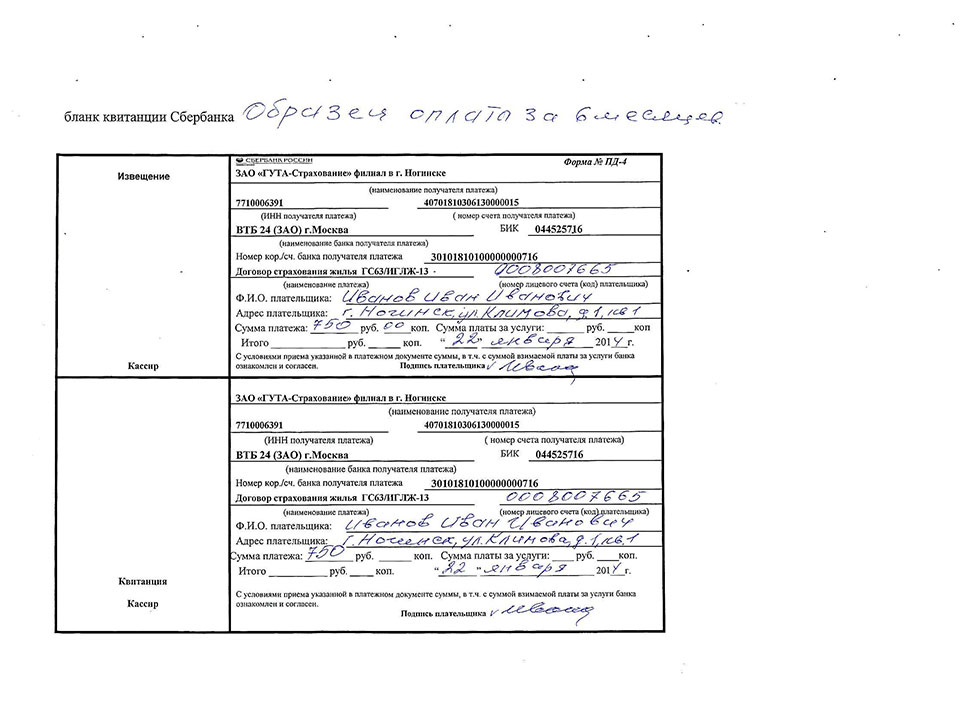 бланк квитанции Сбербанка Образец оплата за 6 месяцев
Извещение
Кассир
СБЕРБАНК РОССИИ Форма № ПД-4
ЗАО «ГУТА-Страхование» филиал в г. Ногинске
(наименование получателя платежа)
7710006391 40701810306130000015
(ИНН получателя платежа) ( номер счета получателя платежа)
ВТБ 24 (ЗАО) г.Москва БИК 044525716
(наименование банка получателя платежа)
Номер кор./сч. банка получателя платежа 30101810100000000716
Договор страхования жилья ГС63/ИГЛЖ-13 - 0008007665
(наименование платежа) (номер лицевого счета (код) плательщика)
Ф.И.О. плательщика: Иванов Иван Иванович
Адрес плательщика: г. Ногинск, ул. Климова, д.1, кв 1
Сумма платежа: 750 руб. 00 коп. Сумма платы за услуги: ______ руб. ____коп
Итого ______________ руб. ______ коп. “ 22 ” января 2014 г.
С условиями приема указанной в платежном документе суммы, в т.ч. с суммой взимаемой платы за услуги банка
ознакомлен и согласен. Подпись плательщика
Квитанция
Кассир
ЗАО «ГУТА-Страхование» филиал в г. Ногинске
(наименование получателя платежа)
7710006391 40701810306130000015
(ИНН получателя платежа) ( номер счета получателя платежа)
ВТБ 24 (ЗАО) г.Москва БИК 044525716
(наименование банка получателя платежа)
Номер кор./сч. банка получателя платежа 30101810100000000716
Договор страхования жилья ГС63/ИГЛЖ-13 0008007665
(наименование платежа) (номер лицевого счета (код) плательщика)
Ф.И.О. плательщика: Иванов Иван Иванович
Адрес плательщика: г. Ногинск, ул. Климова, д.1, кв 1
Сумма платежа: 750 руб. ______ коп. Сумма платы за услуги: ____ руб. ____коп.
Итого ___________ руб. ____ коп. “ 22 ” января 2014 г.
С условиями приема указанной в платежном документе суммы, в т.ч. с суммой взимаемой платы за услуги банка
ознакомлен и согласен.
Подпись плательщика